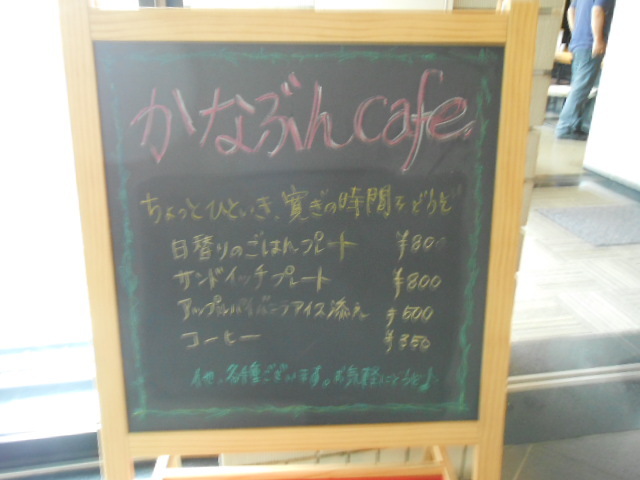 かなぶんcafe
ちょっとひといき、寛ぎの時間をどうぞ
日替りのごはんプレート ¥800
サンドイッチプレート ¥800
アップルパイバニラアイス添え ¥600
コーヒー ¥350
他、各種ございます。お気軽にどうぞ♪